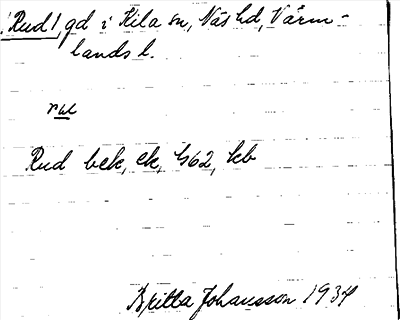 Rud 1, gd i Kila sn, Näs hd, Värm-
lands l.
rud
Rud bek, ek, h62, kb
Britta Johansson 1934